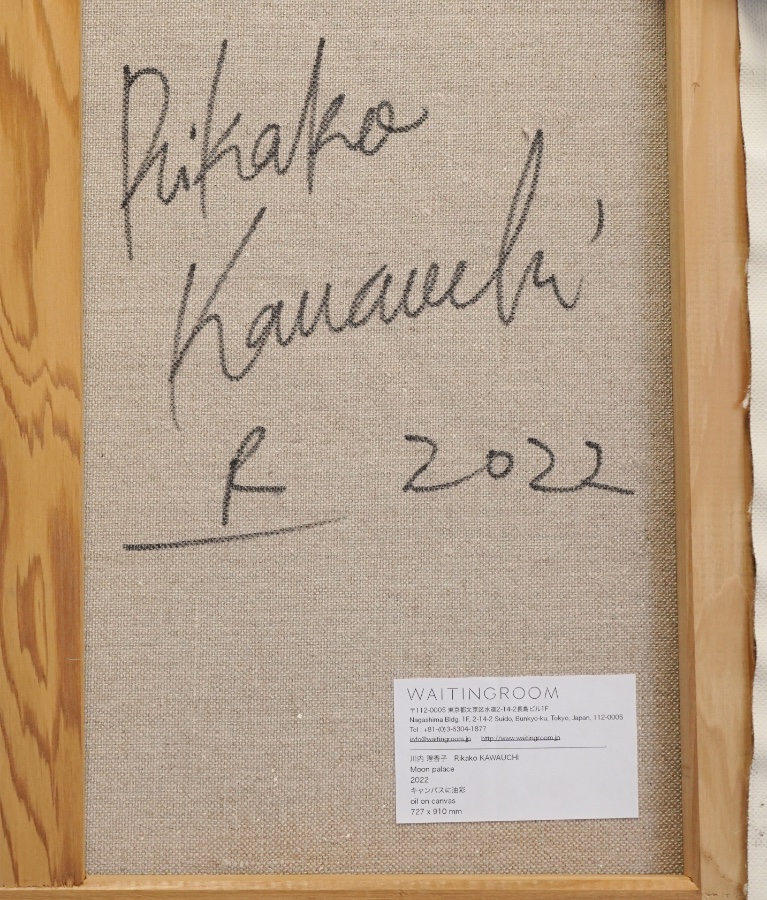 Rikako
Kawauchi
R 2022
WAITINGROOM
〒112-0005 東京都文京区水道2-14-2長島ビル1F
Nagashima Bldg. 1F, 2-14-2 Suido, Bunkyo-ku, Tokyo, Japan, 112-0005
Tel : +81-(0)3-6304-1877
info@waitingroom.jp http://www.waitingroom.jp
川内 理香子 Rikako KAWAUCHI
Moon palace
2022
キャンバスに油彩
oil on canvas
727 x 910 mm